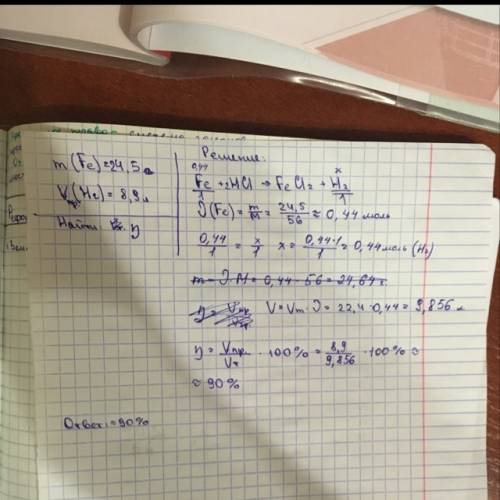 Решение:
m(Fe)=24,5 г
V(H₂)=8,9 л
Найти: η
0,44 x
Fe + 2HCl → FeCl₂ + H₂
1 1
ν(Fe) = m/M = 24,5/56 ≈ 0,44 моль
0,44/1 = x/1 x = 0,44·1/1 = 0,44 моль (H₂)
m = ν·M = 0,44 · 56 = 24,64 г
η = Vпр/Vт V = Vm·ν = 22,4·0,44 = 9,856 л
η = Vпр./Vт · 100% = 8,9/9,856 · 100% ≈
≈ 90%
Ответ: ≈90%